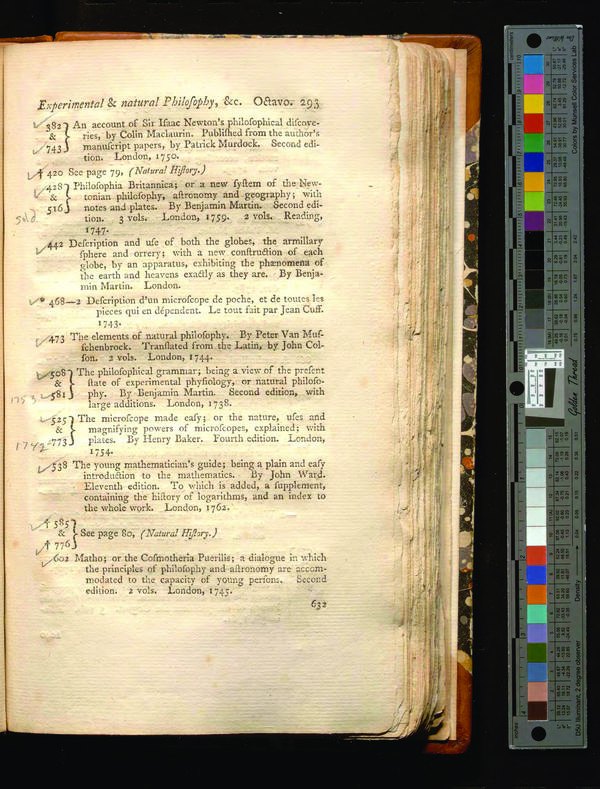 Experimental & natural Philoſophy, &c. Octavo. 293
382 & 743 } An account of Sir Iſaac Newton's philoſophical diſcove-
ries, by Colin Maclaurin. Publiſhed from the author's
manuſcript papers, by Patrick Murdock. Second edi-
tion. London, 1750.
† 420 See page 79, (Natural Hiſtory.)
428 & 516 } Philoſophia Britannica; or a new ſyſtem of the New-
tonian philoſophy, aſtronomy and geography; with
notes and plates. By Benjamin Martin. Second edi-
tion. 3 vols. London, 1759. 2 vols. Reading,
1747.
442 Deſcription and uſe of both the globes, the armillary
ſphere and orrery; with a new conſtruction of each
globe, by an apparatus, exhibiting the phænomena of
the earth and heavens exactly as they are. By Benja-
min Martin. London.
* 468—2 Deſcription d'un microſcope de poche, et de toutes les
pieces qui en dépendent. Le tout fait par Jean Cuff.
1743.
473 The elements of natural philoſophy. By Peter Van Muſ-
ſchenbrock. Tranſlated from the Latin, by John Col-
ſon. 2 vols. London, 1744.
508 & 581 } The philoſophical grammar; being a view of the preſent
ſtate of experimental phyſiology, or natural philoſo-
phy. By Benjamin Martin. Second edition, with
large additions. London, 1738.
1753
525 & 773 } The microſcope made eaſy; or the nature, uſes and
magnifying powers of microſcopes, explained; with
plates. By Henry Baker. Fourth edition. London,
1754.
1742
538 The young mathematician's guide; being a plain and eaſy
introduction to the mathematics. By John Ward.
Eleventh edition. To which is added, a ſupplement,
containing the hiſtory of logarithms, and an index to
the whole work. London, 1762.
† 585 & † 776 } See page 80, (Natural Hiſtory.)
602 Matho; or the Coſmotheria Puerilis; a dialogue in which
the principles of philoſophy and aſtronomy are accom-
modated to the capacity of young perſons. Second
edition. 2 vols. London, 1745.
632
Colors by Munsell Color Services Lab
Golden Thread
Density
D50 Illuminant, 2 degree observer